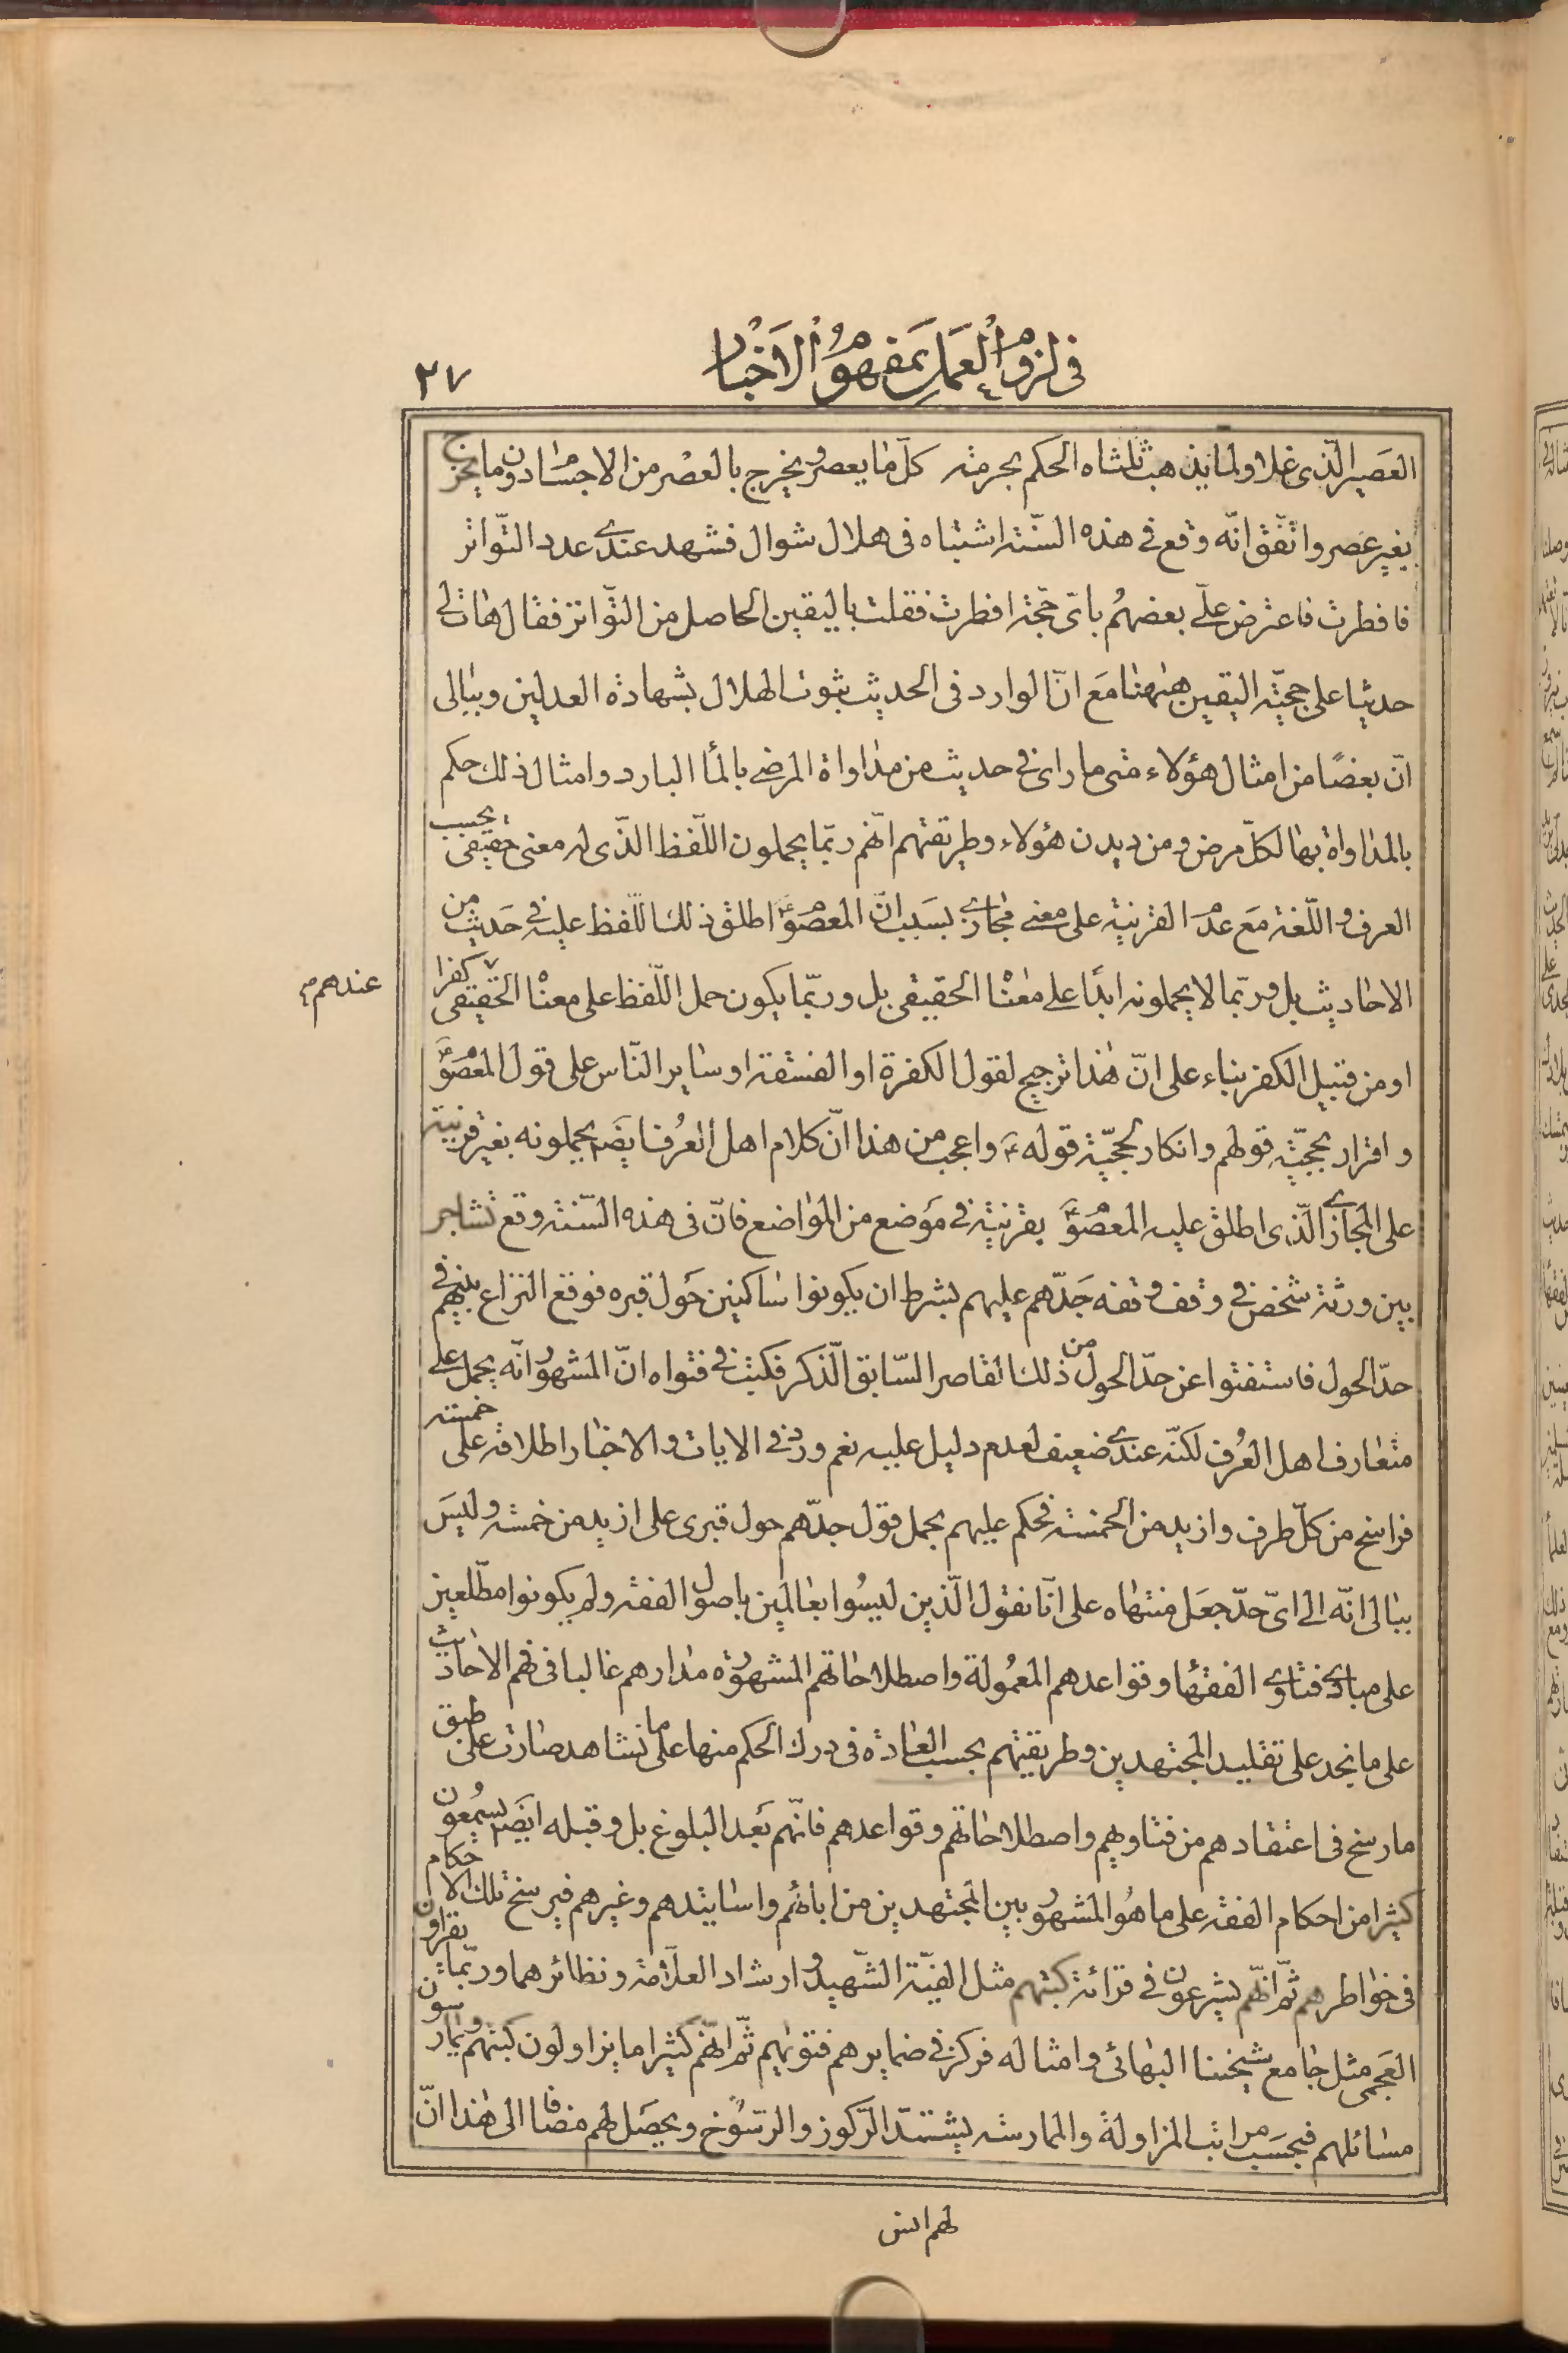 في لزوم العمل بمفهوم الاخبار
٢٧
العصير الذى غلا ولما يذهب ثلثاه الحكم بحرمته كلّ ما يعصر ويخرج بالعصر من الاجسام دون ما يخرج
بغير عصر واتّفق انّه وقع في هذه السّنة اشتباه فى هلال شوال فشهد عندى عدد التّواتر
فافطرت فاعترض علىّ بعضهم باىّ حجّة افطرت فقلت باليقين الحاصل من التّواتر فقال هات لى
حديثا على حجيّة اليقين ههنا مع انّ الوارد فى الحديث ثبوت الهلال بشهادة العدلين وببالى
انّ بعضًا من امثال هؤلاء متى ما راى في حديث من مداواة المرضى بالماء البارد وامثال ذلك حكم
بالمداواة بها لكلّ مرض ومن ديدن هؤلاء وطريقتهم انّهم ربّما يحملون اللّفظ الذّى له معنى حقيقى بحسب
العرف واللّغة مع عدم القرنية على معنى مجازى بسبب انّ المعصوم ع اطلق ذلك اللّفظ عليه في حديث من
الاحاديث بل وربّما لا يحملونه ابدًا على معناه الحقيقى بل وربّما يكون حمل اللّفظ على معناه الحقيقى كفرا
عندهم
او من قبيل الكفر بناء على انّ هذا ترجيح لقول الكفرة او الفسقة او ساير النّاس على قول المعصوم ع
واقرار بحجيّة قولهم وانكار لحجيّة قوله ع واعجب من هذا انّ كلام اهل العرف ايضا يحملونه بغير قرنية
على المجازى الّذى اطلق عليه المعصوم ع بقرنية في موضع من المواضع فانّ فى هذه السّنة وقع تشاجر
بين ورثة شخص في وقف وقفه جدّهم عليهم بشرط ان يكونوا ساكنين حول قبره فوقع النزاع بينهم في
حدّ الحول فاستفتوا عن حدّ الحول من ذلك القاصر السّابق الّذكر فكتب في فتواه انّ المشهور انّه يحمل على
متعارف اهل العرف لكنّه عندى ضعيف لعدم دليل عليه نعم ورد في الايات والاخبار اطلاقه على خمسة
فراسخ من كلّ طرف وازيد من الخمسة فحكم عليهم بحمل قول جدّهم حول قبرى على ازيد من خمسة وليس
ببالى انّه الى اىّ حدّ جعل منتهاه على انّا نقول الّذين ليسوا بعالمين باصول الفقه ولم يكونوا مطّلعين
على مبادى فتاوى الفقهاء وقواعدهم المعمولة واصطلاحاتهم المشهورة مدارهم غالبا فى فهم الاحاديث
على ما نجد على تقليد المجتهدين وطريقتهم بحسب العادة فى درك الحكم منها على ما نشاهد صارت على طبق
ما رسخ فى اعتقادهم من فتاويهم واصطلاحاتهم وقواعدهم فانّهم بعد البلوغ بل وقبله ايضا يسمعون
كثيرا من احكام الفقه على ما هو المشهور بين المجتهدين من ابائهم واساتيدهم وغيرهم فيرسخ تلك الاحكام
فى خواطرهم ثمّ انّهم يشرعون في قرائة كتبهم مثل الفيّة الشّهيد وارشاد العلّامة ونظائرهما وربّما يقراون
العجمى مثل جامع شيخنا البهائى وامثاله فركز في ضمايرهم فتويهم ثمّ انّهم كثيرا ما يزاولون كتبهم ويمارسون
مسائلهم فبحسب مراتب المزاولة والممارسة يشتدّ الرّكوز والرّسوخ ويحصل لهم مضافا الى هذا انّ
لهم انس